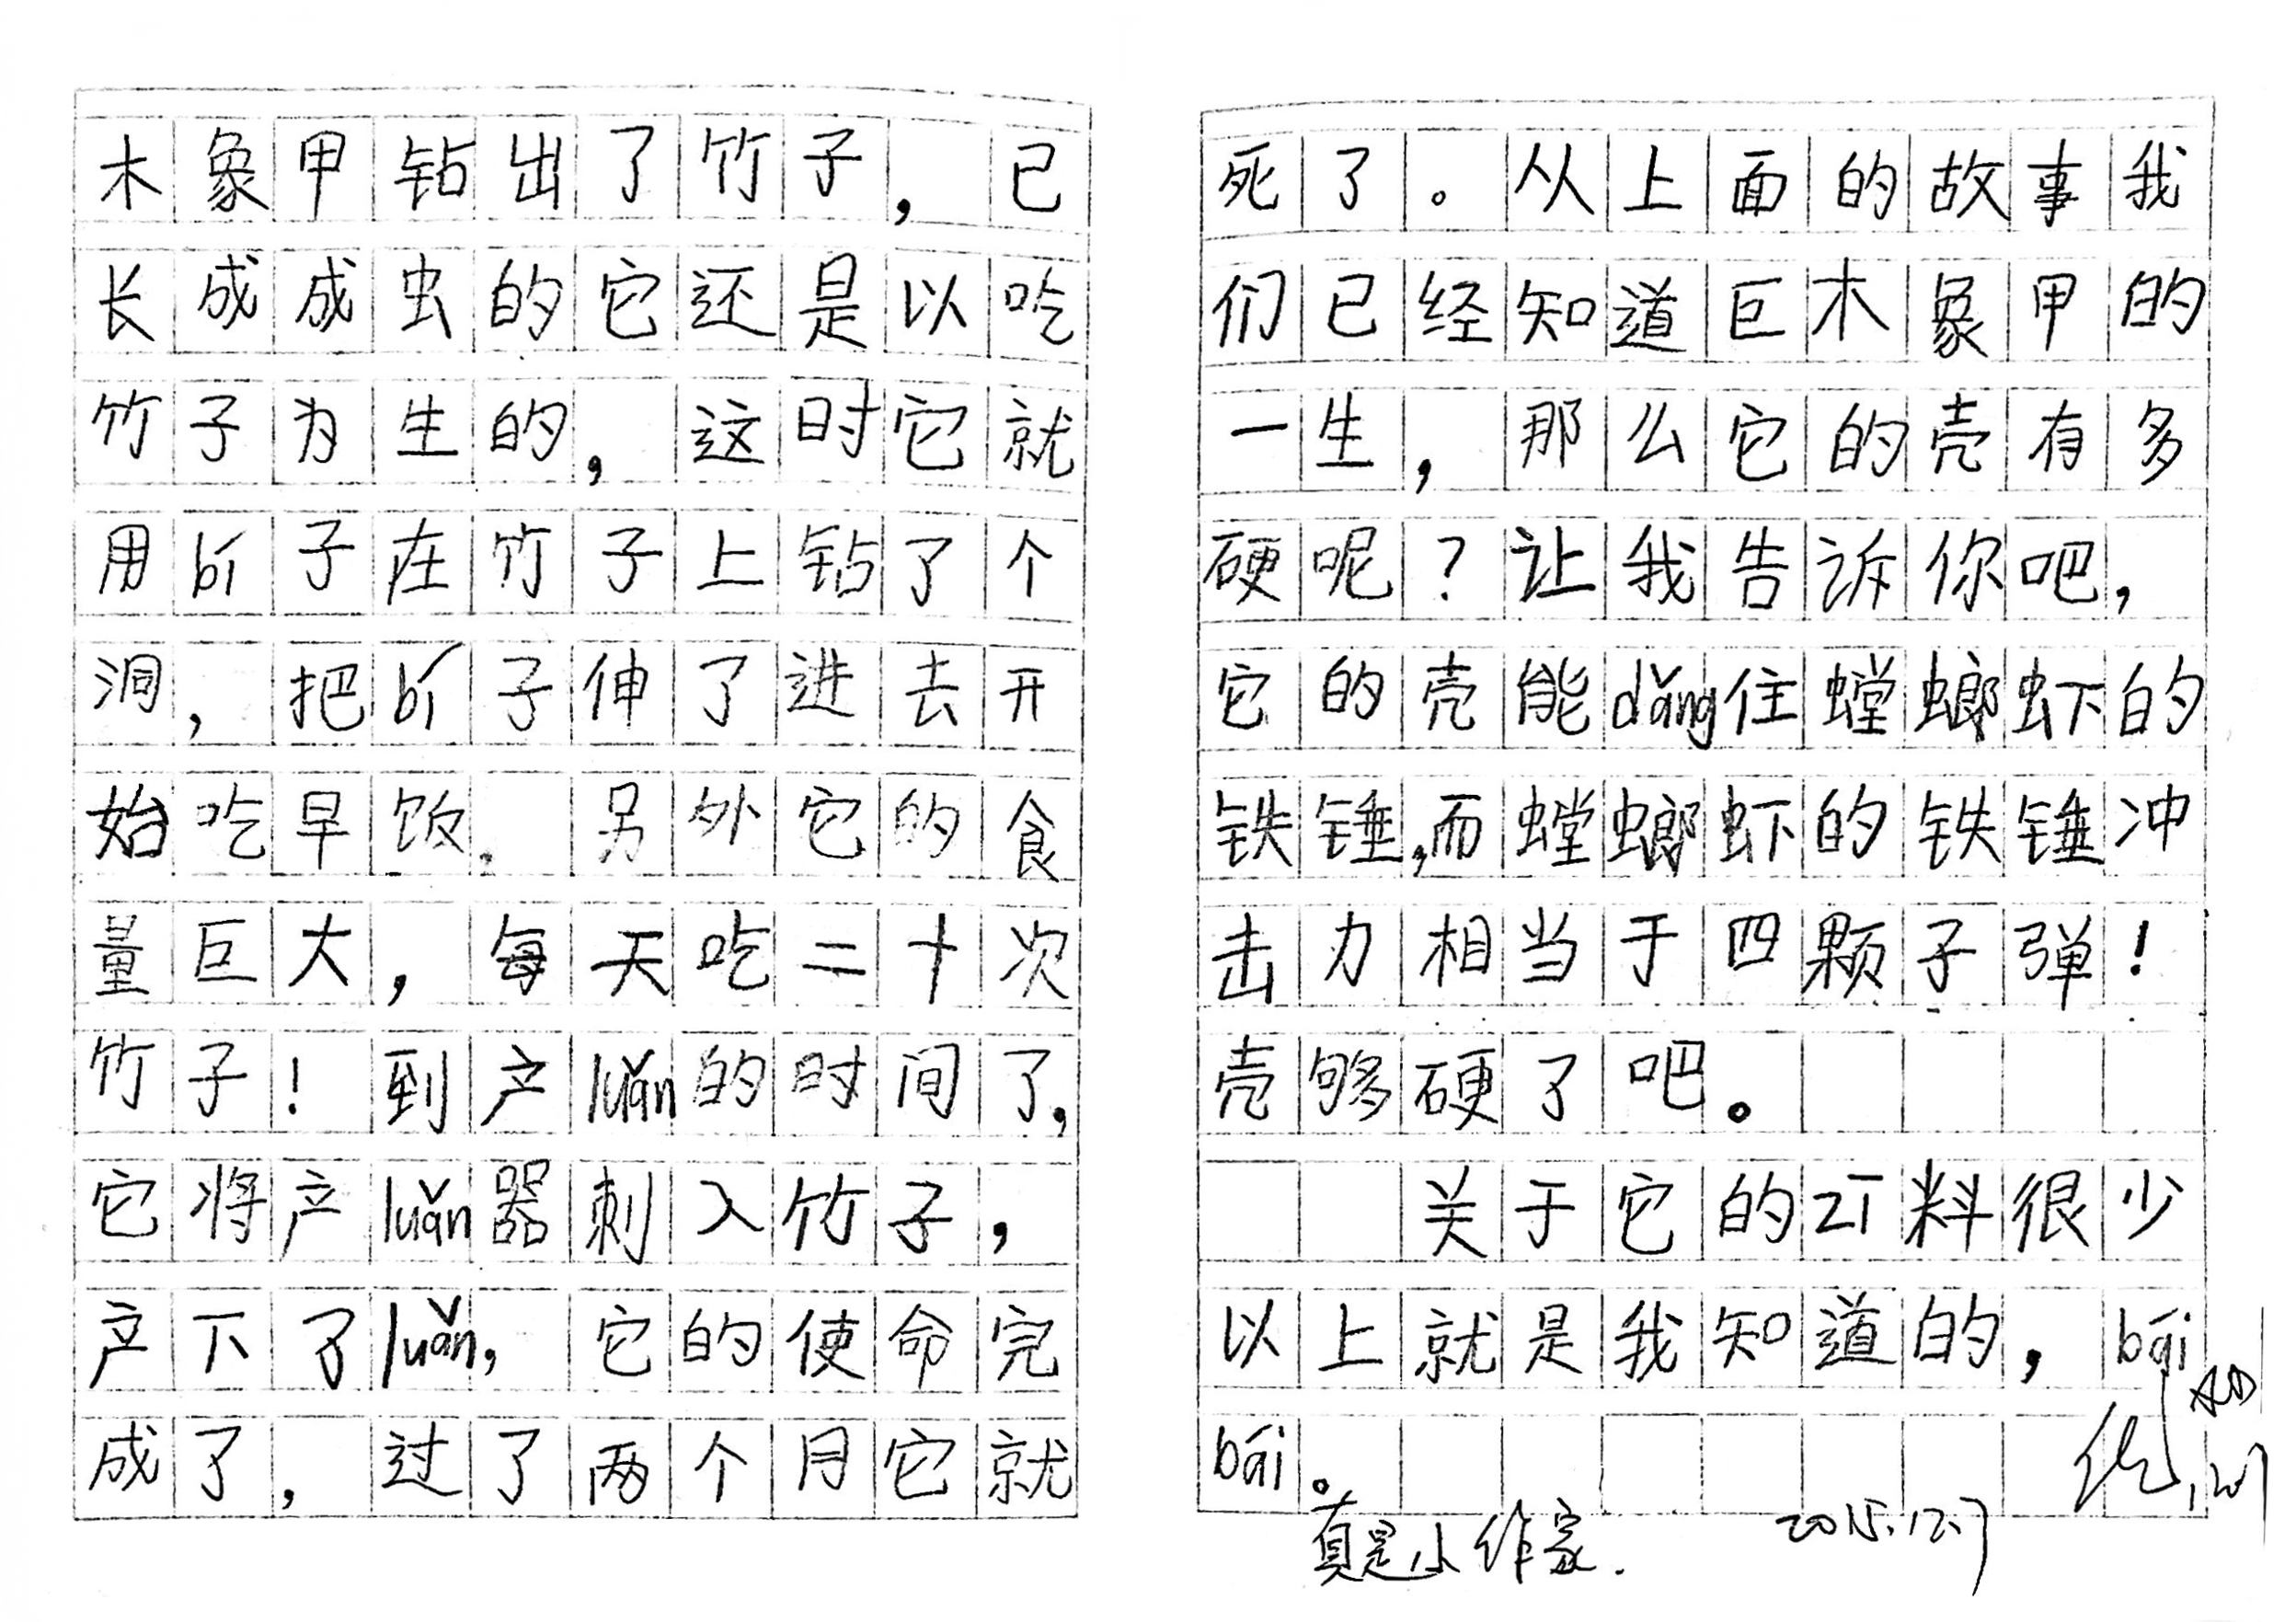 木象甲钻出了竹子，已
长成成虫的它还是以吃
竹子为生的，这时它就
用bí子在竹子上钻了个
洞，把bí子伸了进去开
始吃早饭。另外它的食
量巨大，每天吃二十次
竹子！到产luǎn的时间了，
它将产luǎn器刺入竹子，
产下了luǎn，它的使命完
成了，过了两个月它就
死了。从上面的故事我
们已经知道巨木象甲的
一生，那么它的壳有多
硬呢？让我告诉你吧，
它的壳能dǎng住螳螂虾的
铁锤，而螳螂虾的铁锤冲
击力相当于四颗子弹！
壳够硬了吧。
关于它的zī料很少
以上就是我知道的，bāi
bāi。
真是小作家.
2015.12.7